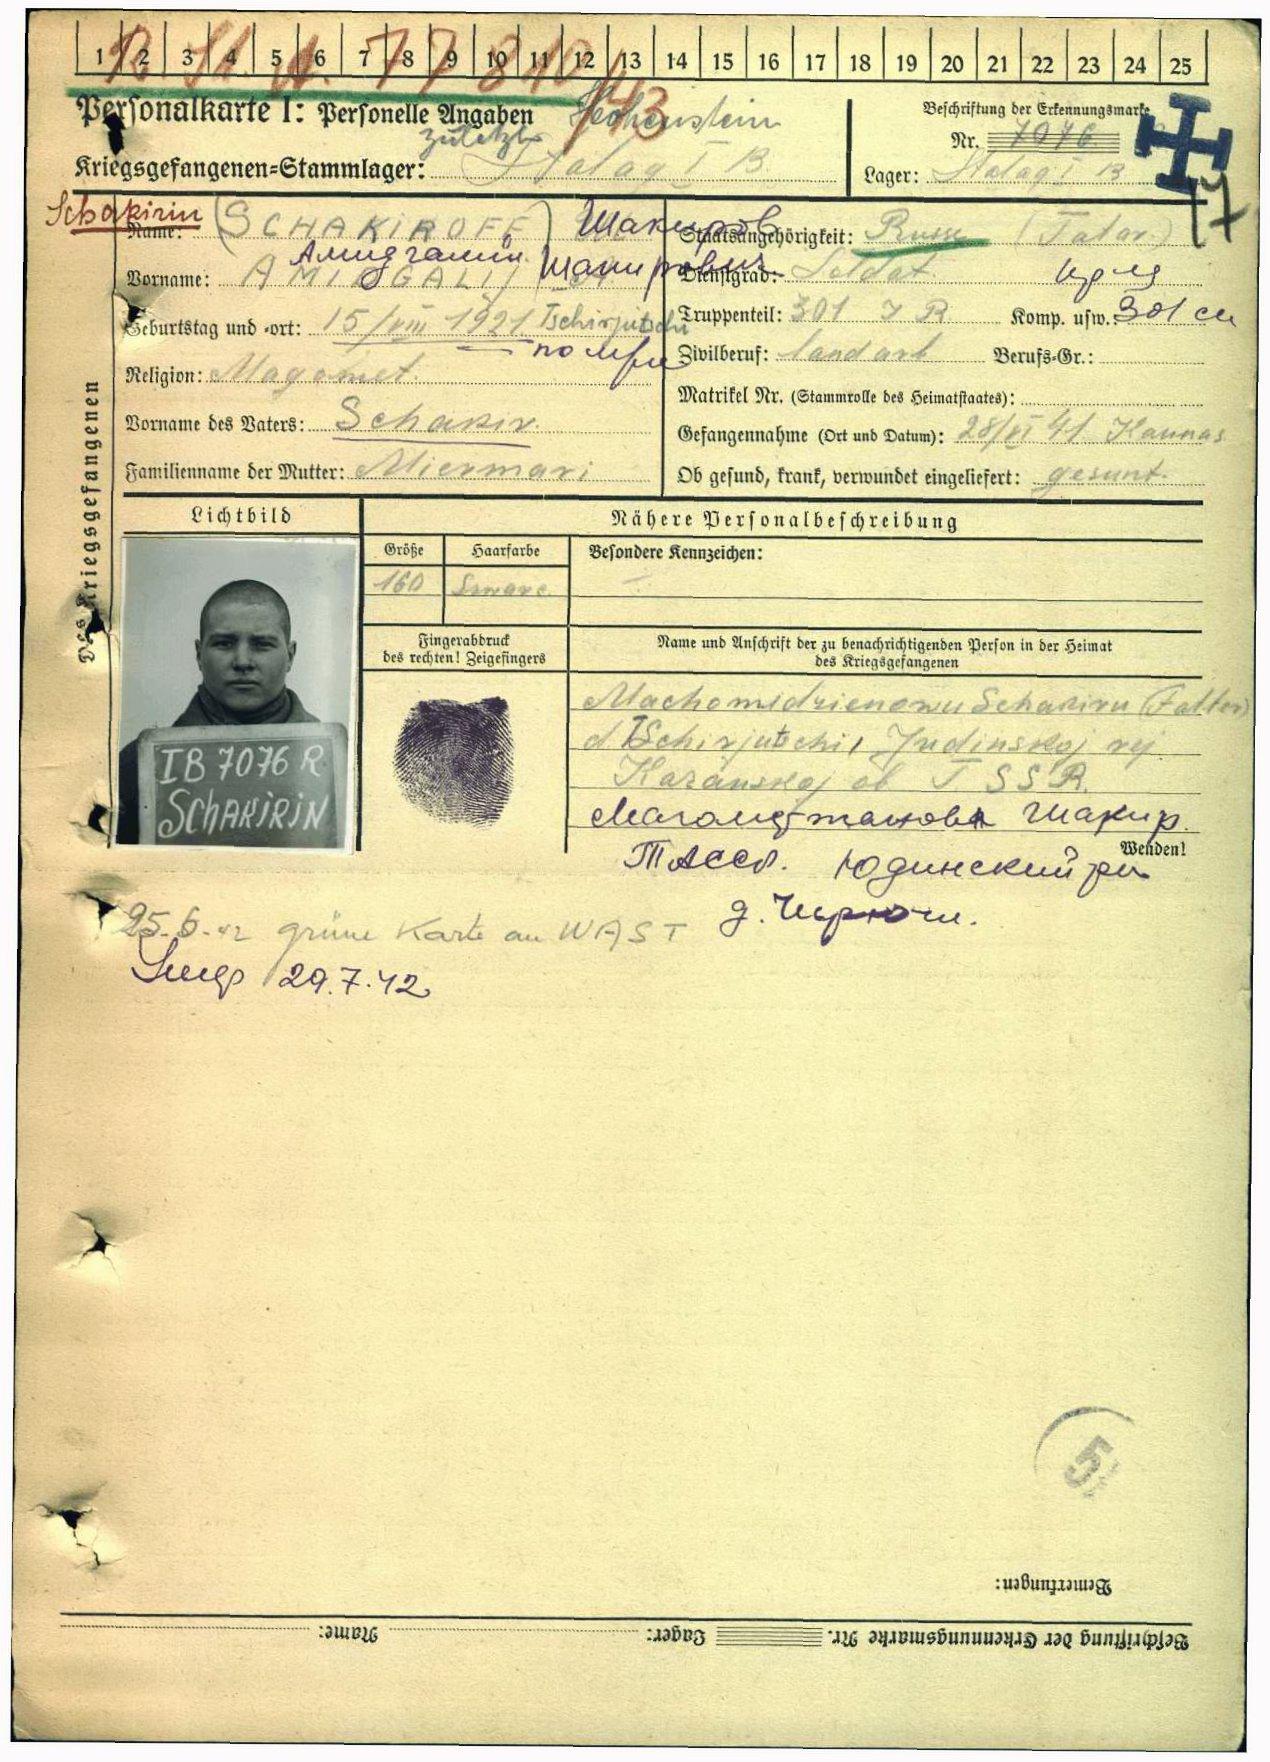 1 2 3 4 5 6 7 8 9 10 11 12 13 14 15 16 17 18 19 20 21 22 23 24 25
77810/43
Personalkarte I: Personelle Angaben
Hohenstein
Beschriftung der Erkennungsmarke
Nr. 7076
zuletzt
Kriegsgefangenen=Stammlager: Stalag I B
Lager: Stalag I B
17
Schakirin
Name: (SCHAKIROFF) Шакиров
Staatsangehörigkeit: Russe (Tatar)
Шакирович
Vorname: AMIRGALIJ
Dienstgrad: Soldat
Geburtstag und -ort: 15/VIII 1921 Tschirjutschi
Truppenteil: 301 I R
Komp. usw.: 301 сп
Zivilberuf: landarb
Berufs-Gr.:
Religion: Magomet.
Matrikel Nr. (Stammrolle des Heimatstaates):
Vorname des Vaters: Schakir.
Gefangennahme (Ort und Datum): 28/VI 41 Kaunas
Familienname der Mutter: Miermari
Ob gesund, krank, verwundet eingeliefert: gesunt.
Des Kriegsgefangenen
Lichtbild
Nähere Personalbeschreibung
Größe
Haarfarbe
Besondere Kennzeichen:
160
–
Fingerabdruck
des rechten! Zeigefingers
Name und Anschrift der zu benachrichtigenden Person in der Heimat
des Kriegsgefangenen
IB 7076 R
SCHAKIRIN
Schakiru (Fatter)
d Tschirjutschi, Judinskoj rej
Kazanskoj ob T SSR.
Шакир.
Wenden!
ТАССР. Юдинский рн
25.6.42 grüne Karte an WAST
д.
29.7.42
5
Bemerkungen:
Beschriftung der Erkennungsmarke Nr. Lager: Name: